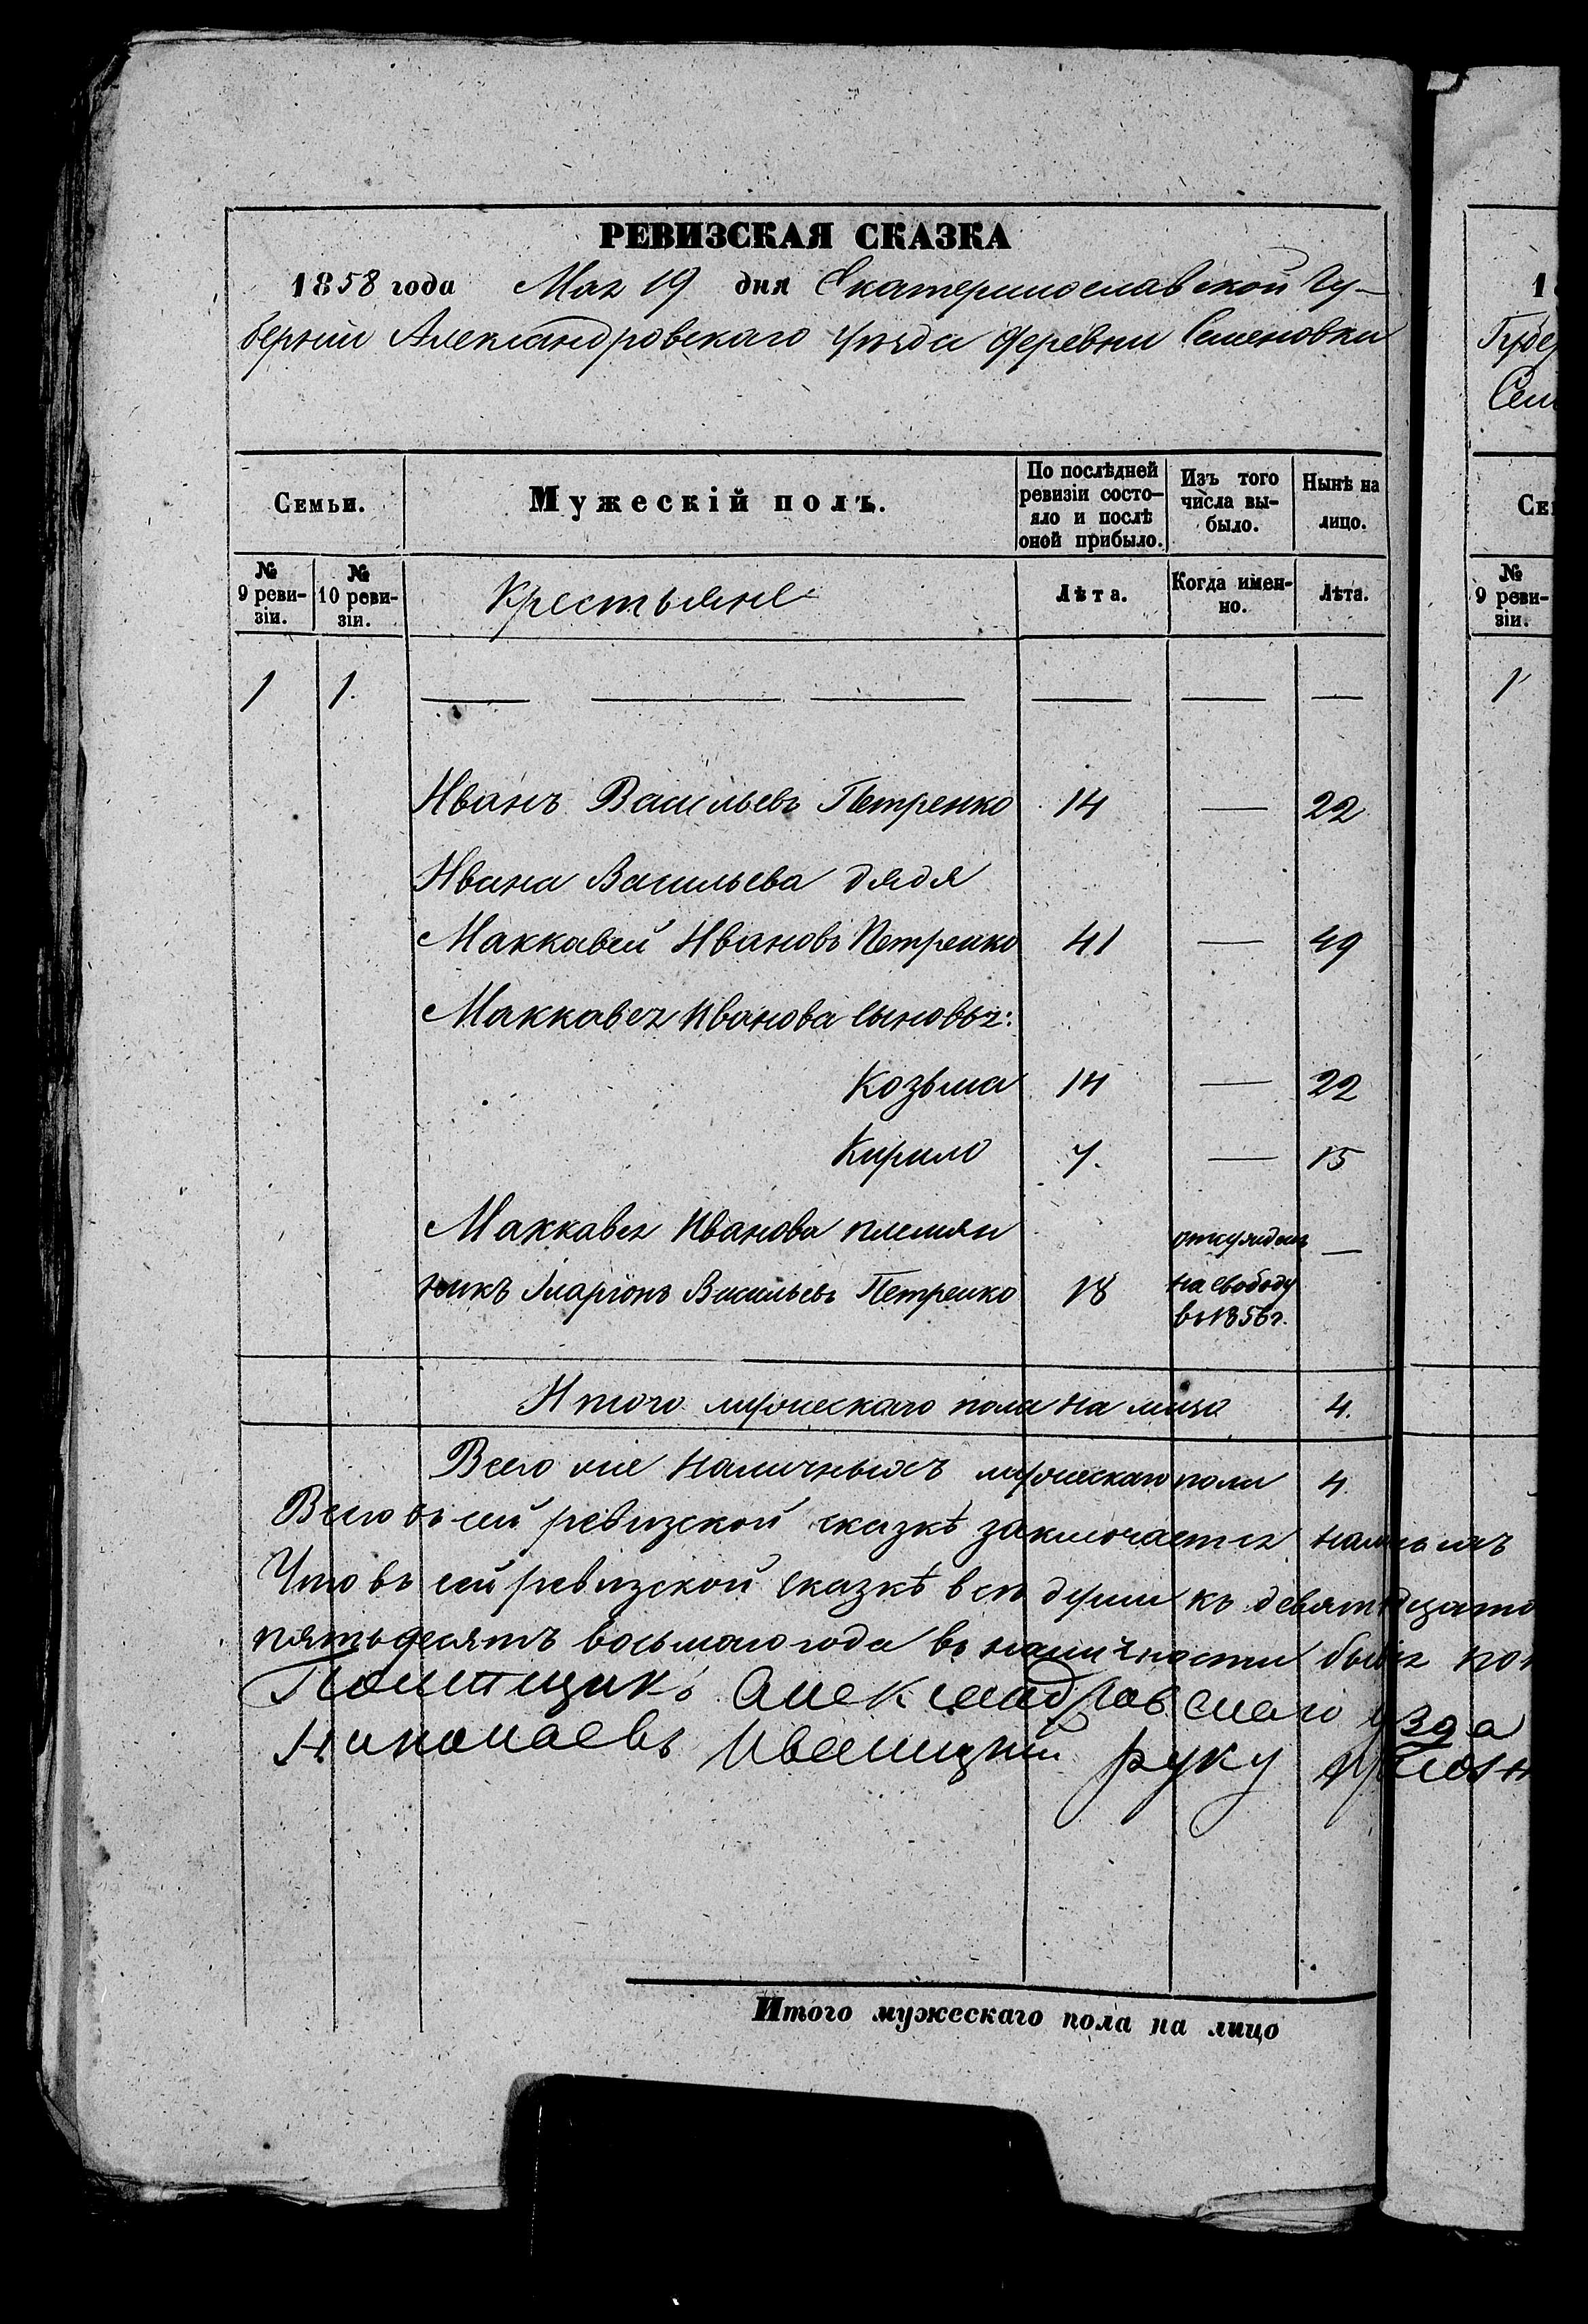 РЕВИЗСКАЯ СКАЗКА
1858 года Мая 19 дня Екатеринославской Гу-
берніи Александровскаго Уѣзда деревни Семеновки
Семьи.
Мужескій полъ.
По послѣдней ревизіи состо-
яло и послѣ
оной прибыло.
Изъ того
числа вы-
было.
Нынѣ на
лицо.
№
9 реви-
зіи.
№
10 реви-
зіи.
Крестьяне
Лѣта.
Когда имен-
но.
Лѣта.
1 1.
Иванъ Васильевъ Петренко 14 — 22
Ивана Васильева дядя
Маккавей Ивановъ Петренко 41 — 49
Маккавея Иванова сыновья:
Козьма 14 — 22
Кирило 7. — 15
Маккавея Иванова племян отпущенъ —
никъ Иларіонъ Васильевъ Петренко 18 на свободу
въ 1856 г.
Итого мужескаго пола на лицо 4.
Всего же наличныхъ мужескаго пола 4.
Всего въ сей ревизской сказкѣ заключается наличныхъ
Что въ сей ревизской сказкѣ всѣ души къ девятнадцато
пятьдесятъ восьмого года въ наличности бывшія
Помещикъ Александровскаго узда
Николаевъ Иваницкій руку
Итого мужескаго пола на лицо
1
Губер
Сем
Се
№
9 реви-
зіи.
1